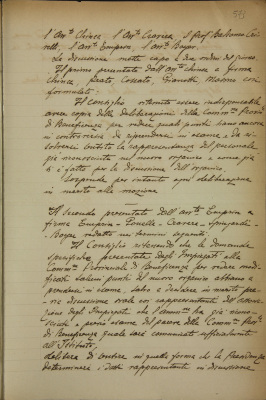 l'avv. Chiesa, l'avv. Cravera, il prof. Barbano
l'avv. Emprin, l'avv. Boyer.
La discussione mette capo a due ordini del giorno.
Il primo presentato dall'avv. Chiesa a firma
Chiesa,
formulato:
Il Consiglio ritenuto essere indispensabile
avere copia della deliberazione della Comm.e Prov.le
di Beneficenza per vedere quali punti siano ancora
in controversia di riprendersi in esame e da ri-
solversi sentita la rappresentanza del personale
già riconosciuta nel nuovo organico e come già
si è fatto per la discussione dell'organico.
Sospende per intanto ogni deliberazione
in merito alla mozione
Il secondo presentato dall'avv. Emprin a
firma Emprin - Cravera -
Boyer redatto nei termini seguenti:
Il Consiglio ritenendo che le domande
presentate dagli Impiegati alla
Comm. Provinciale di Beneficenza per vedere modi-
ficati alcuni punti del nuovo organico abbiano a
prendersi in esame, salvo a decidere in merito pre-
via discussione orale coi rappresentanti dell'associa-
zione degli Impiegati che l'amm.ne ha già ricono-
sciuti e previo esame del parere della Comm. Prov.
di Beneficenza quale sarà comunicato ufficialmente
all'Istituto,
delibera di sentire in quelle forme che la Presidenza
determinerà i detti rappresentanti in discussione